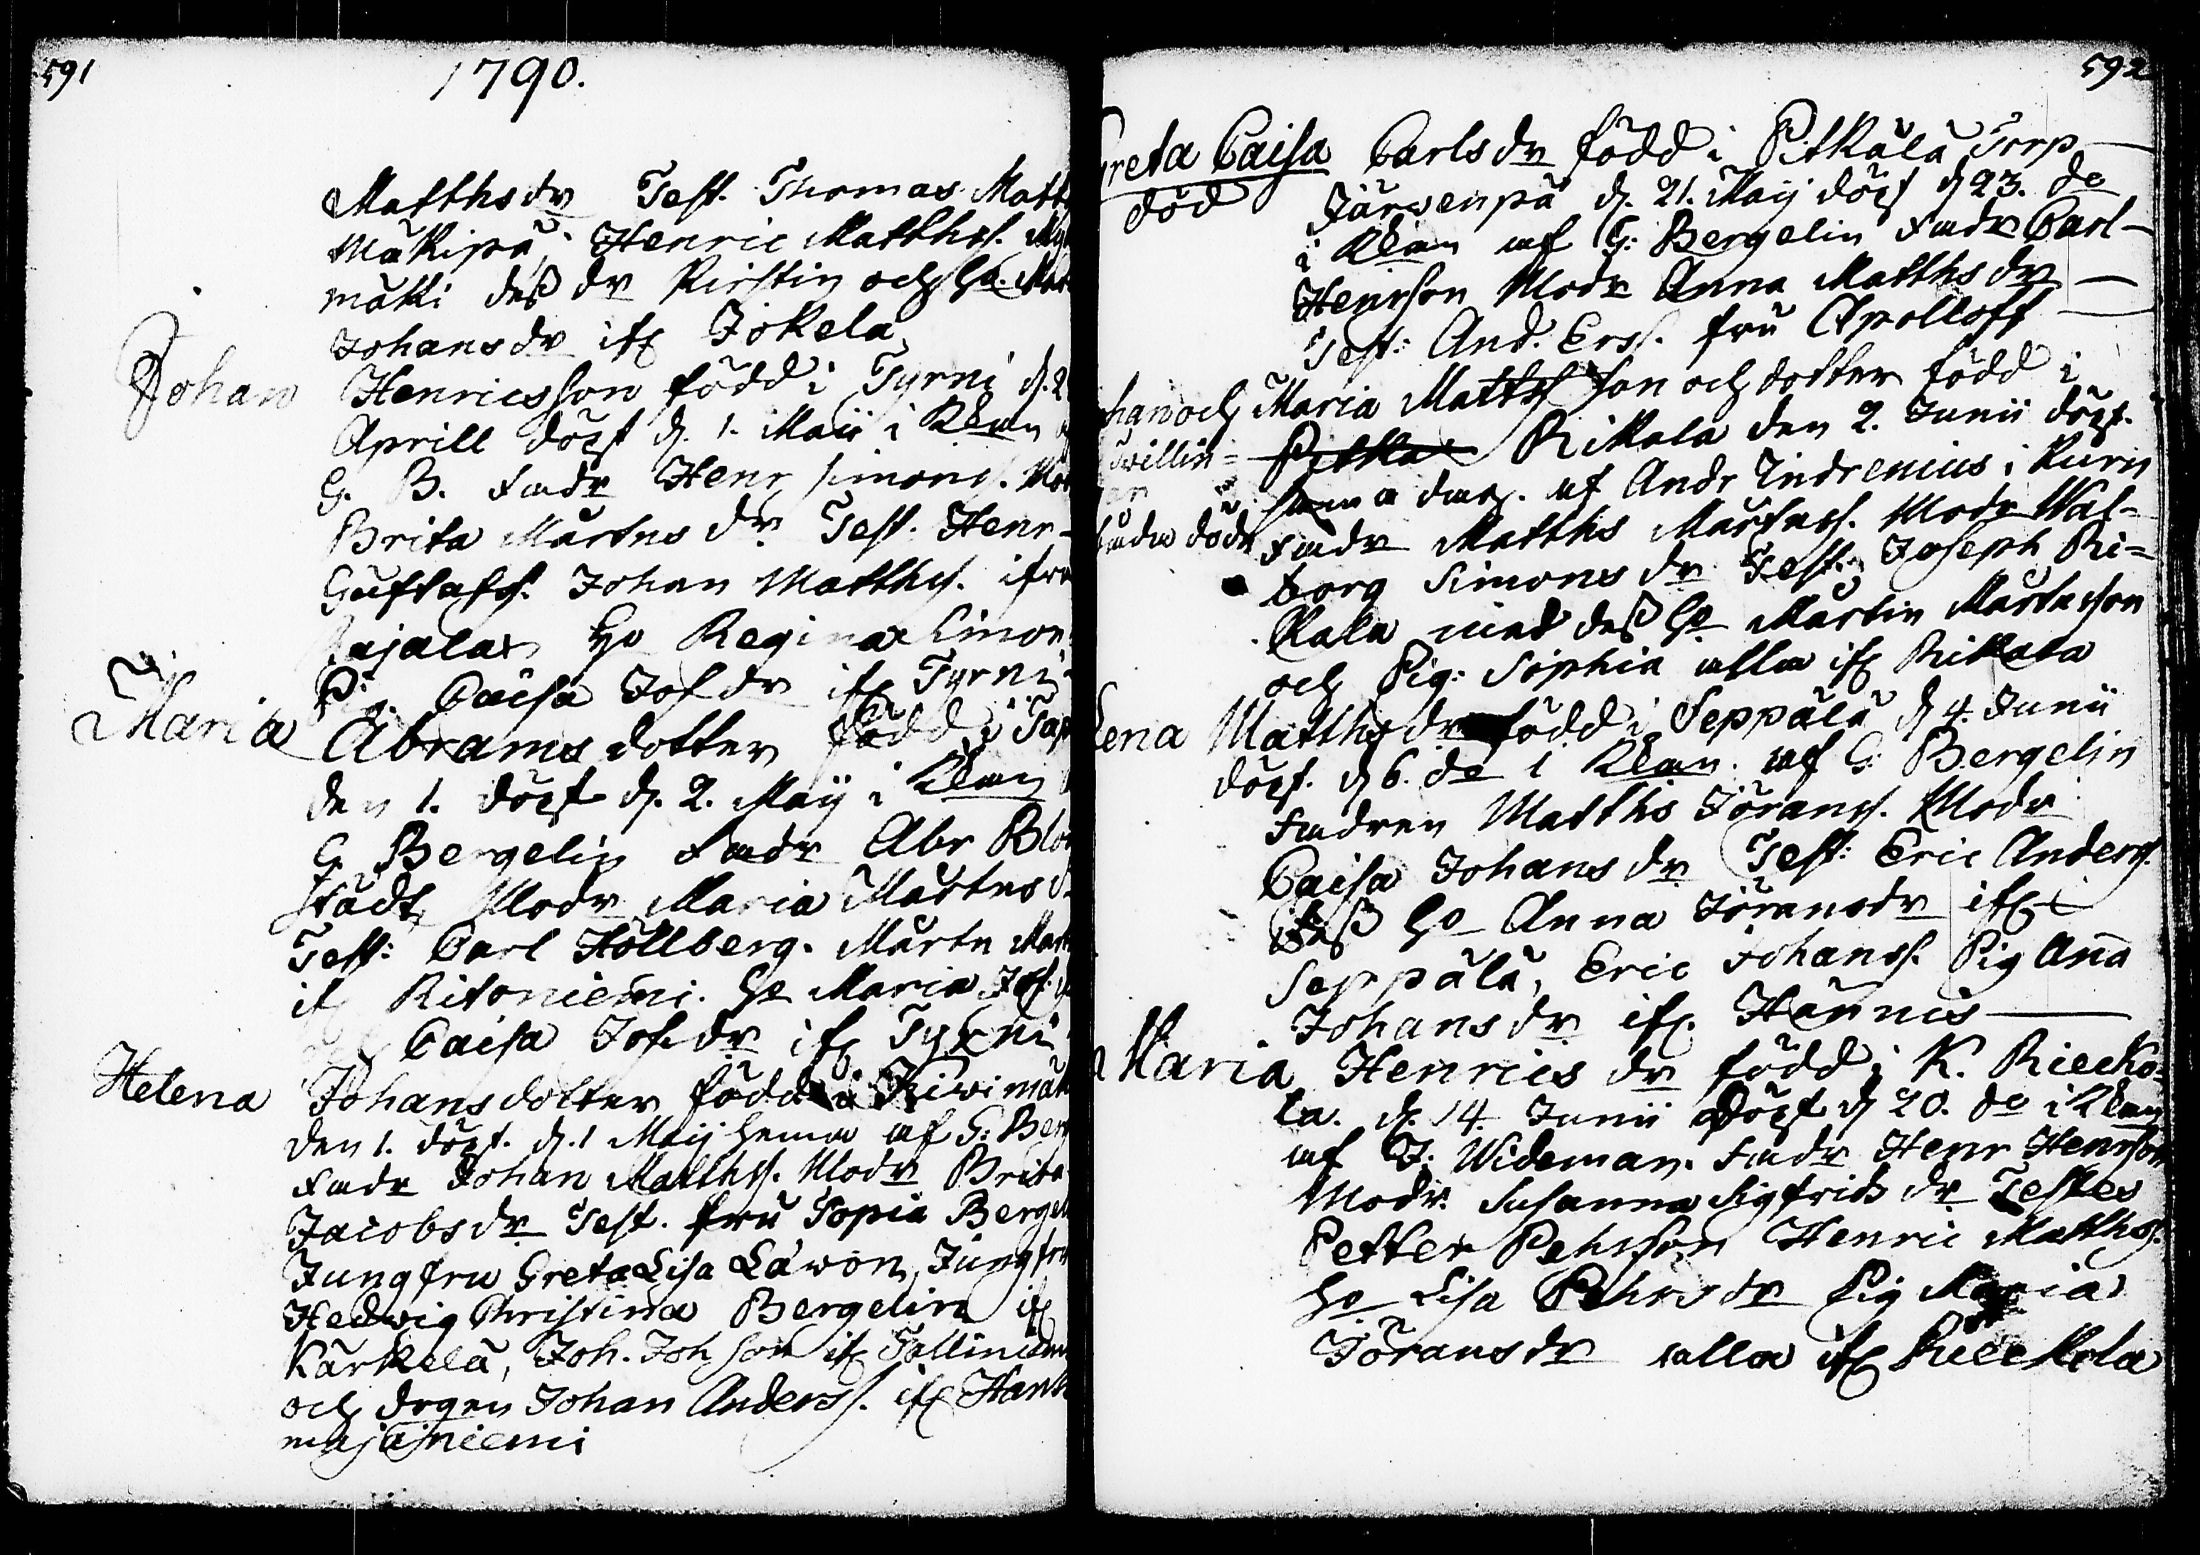 591
1790.
Matthsdr Test. Thomas Matt
Mäkipä, Henric Matthss.
mäki deß dr Kirstin och h:o
Johansdr ifr Jokela
Johan Henricsson född i Tyrni d. 2
Aprill döpt d. 1. Maii i Kkan
G. B. Fadr Henr Simons. Mod
Brita Mårtnsdr Test. Henr
Gustafss. Johan Matthss. ifrå
h:o Regina Simon
Pig. Caisa Jofdr ifr Tyrni
Maria Abramsdotter född i
den 1. döpt d. 2. Maij i Kkan
G Bergelin Fadr Abr Blom
städt, Modr Maria Mårtnsd
Test: Carl Höllberg. Mårtn
ifr Ritoniemi. h:o Maria Jof.
Caisa Jofdr ifr Tyrni
Helena Johansdotter född i Kiwimäk
den 1. döpt. d. 1 Maij hema af G: Berg
Fadr Johan Matthss. Modr Brita
Jacobsdr Test. fru Sopia Bergel
Jungfru Greta Lisa Läwon, Jungfru
Hedwig Christina Bergelin ifr
Kärkelä, Joh. Joh son ifr Tallinicmi
och drgen Johan Anderss. ifr Hank
majaniemi
592
Greta Caisa Carlsdr född i Pitkälä Torp
död Järwenpä d. 21. Maij döpt d 23. de
i Kkan af G: Bergelin Fadr Carl
Henrson Modr Anna Matthsdr
Test: And. Erss. fru Apolloff
han och Maria Matths son och dotter född i
twillin= Rikala den 2. Junii döpt.
samma dag. af Andr Indrenius i Kurn
båda döde Fadr Matths Mårtnss. Modr Wal=
borg Simonsdr Test. Joseph Ri=
kala med deß h:o Martin Mårtnson
och Pig: Sophia alla ifr Rikkala
Lena Matthsdr född i Seppälä d 4. Junii
döpt. d 6. de i Kkan. af G: Bergelin
Fadren Matths Jöranss. Modr
Caisa Johansdr Test: Eric Anderss.
deß h:o Anna Jöransdr ifr
Seppälä, Eric Johanss. Pig Ana
Johansdr ifr. Hannis
Maria Henricsdr född i K. Riecko=
la. d. 14. Junii Döpt d 20. de i Kkan
af J: Wideman. Fadr Henr Henrsson
Modr. Susanna Sigfridsdr Testes
Petter Pehrson Henric Matthss.
h:o Lisa Pehrsdr Pig Maria
Jöransdr alla ifr Rieckola